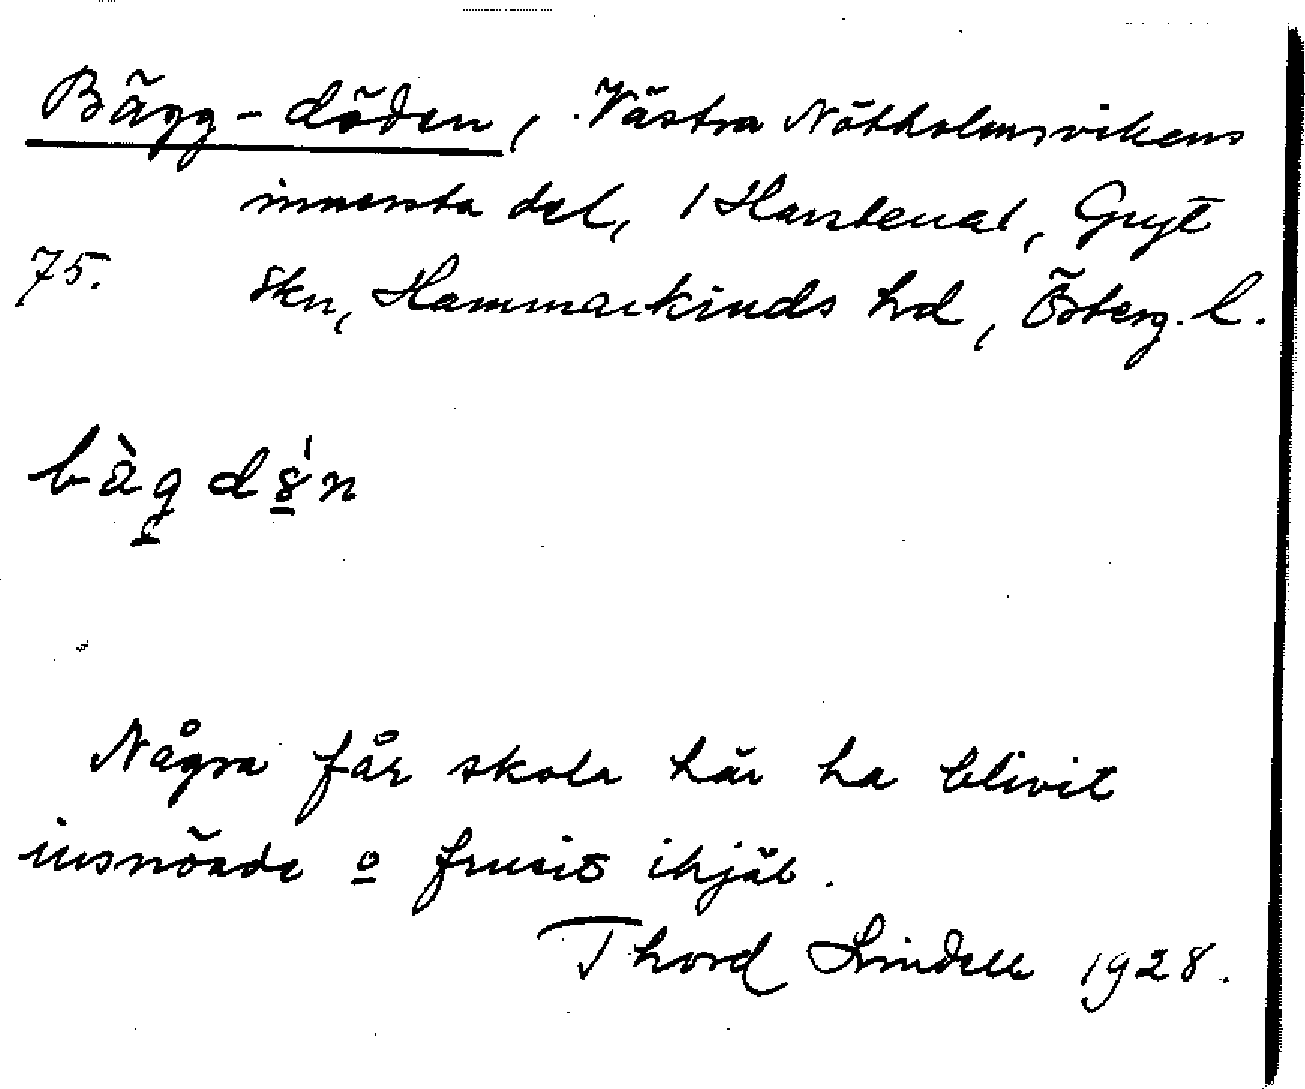 Bägg-döden, Västra Nötholmsvikens
innersta del, 1 Harstena 1, Gryt
75. skn, Hammarkinds hd, Österg. l.
bàg dö́n
Några får skola här ha blivit
insnöade o frusit ihjäl.
Thord Lindell 1928.